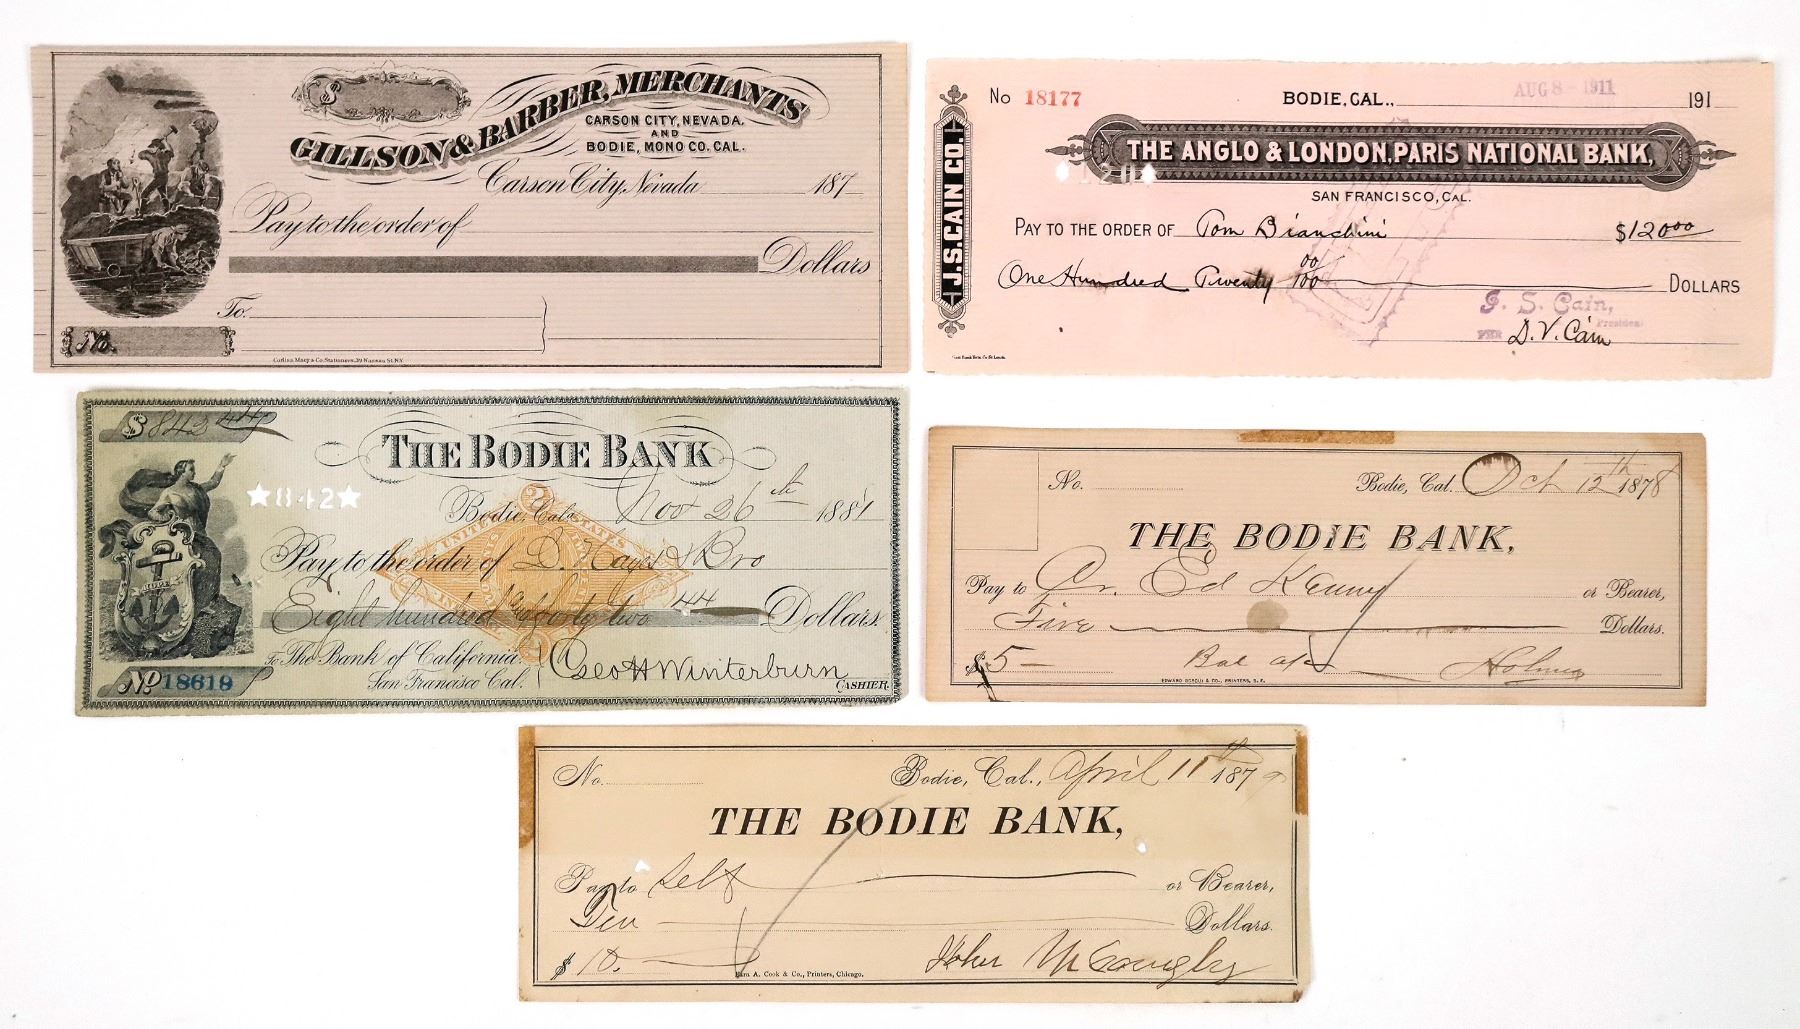 $
GILLSON & BARBER, MERCHANTS
CARSON CITY, NEVADA.
AND
BODIE, MONO CO. CAL.
Carson City, Nevada 187
Pay to the order of
Dollars
To
No.
Corlies Macy & Co. Stationers. 39 Nassau St. N.Y.
J.S. CAIN CO.
No 18177
BODIE, CAL., AUG 8 - 1911 191
THE ANGLO & LONDON, PARIS NATIONAL BANK,
SAN FRANCISCO, CAL.
PAY TO THE ORDER OF Tom Bianchini $120 00
One Hundred Twenty 00/100 DOLLARS
J. S. Cain,
President
PER D. V. Cain
$ 842 44
THE BODIE BANK
★842★
Bodie, Cal. Nov 26th 1881
UNITED STATES
Pay to the order of D. Hays & Bro
Eight hundred & forty two 44 Dollars.
To The Bank of California.
San Francisco Cal.
Geo H Winterburn
CASHIER.
HOPE
No 18619
No. Bodie, Cal. Oct 12th 1878
THE BODIE BANK,
Pay to Ed Kenny or Bearer,
Five Dollars.
$ 5 —
Holmes
No. Bodie, Cal., April 11th 1879
THE BODIE BANK,
Pay to Self or Bearer,
Ten Dollars.
$ 10. John
Sam A. Cook & Co., Printers, Chicago.